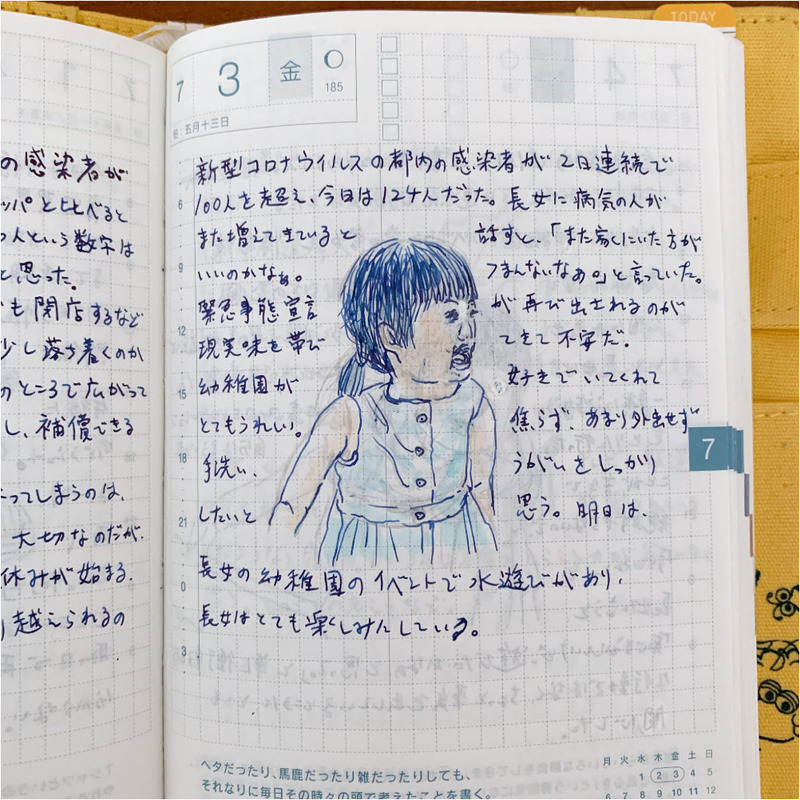 の感染者が
ッパと比べると
人という数字は
と思った。
も閉店するなど
少し落ち着くのか
のところで広がって
し、補償できる
ってしまうのは、
大切なのだが、
休みが始まる。
越えられるの
TODAY
7 3 金
185
五月十三日
新型コロナウイルスの都内の感染者が2日連続で
6 100人を超え、今日は124人だった。長女に病気の人が
また増えてきていると 話すと、「また家にいた方が
9 いいのかなぁ。 つまんないなぁ。」と言っていた。
緊急事態宣言 が再び出されるのが
12 現実味を帯び てきて不安だ。
15 幼稚園が 好きでいてくれて
とてもうれしい。 焦らず、あまり外出せず
18 手洗い、 うがいをしっかり
21 したいと 思う。明日は、
0 長女の幼稚園のイベントで水遊びがあり、
長女はとても楽しみにしている。
3
7
ヘタだったり、馬鹿だったり雑だったりしても、
それなりに毎日その時々の頭で考えたことを書く。
月 火 水 木 金 土 日
1 2 3 4 5
6 7 8 9 10 11 12